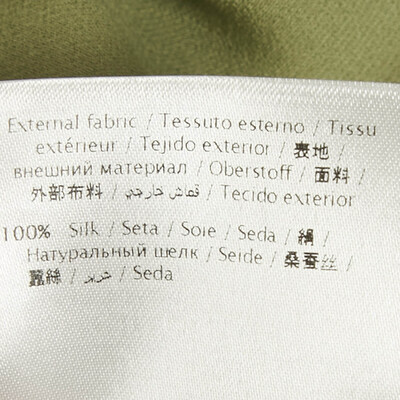 External fabric / Tessuto esterno / Tissu
extérieur / Tejido exterior / 表地 /
внешний материал / Oberstoff / 面料 /
外部布料 / قماش خارجي / Tecido exterior
100% Silk / Seta / Soie / Seda / 絹 /
Натуральный шелк / Seide / 桑蚕丝 /
蠶絲 / حرير / Seda